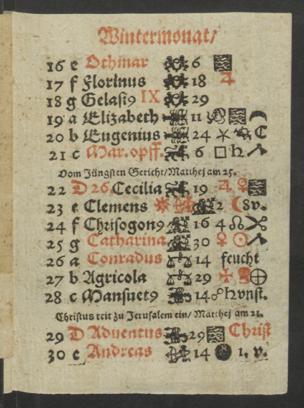 Wintermonat/
16 e Othmar 6
17 f Florinus 18 ♃
18 g Gelasi9 IX 29
19 a Elizabeth 11
20 b Eugenius 24 ⚹ ☾
21 c Mar. opff. 6 □ ♄
Vom Jüngsten Gericht/Matthej am 25.
22 D 26 Cecilia 19 ♃ ♀
23 e Clemens 2 ☾ 8v.
24 f Chrisogon9 16 4 ☊
25 g Catharina 30 ♀ ☉
26 a Conradus 14 feucht
27 b Agricola 29
28 c Mansuet9 14 ☍ ♄ vnst.
Christus reit zu Jerusalem ein/ Matthej am 21.
29 D Aduentus 29 Christ
30 e Andreas 14 1. v.